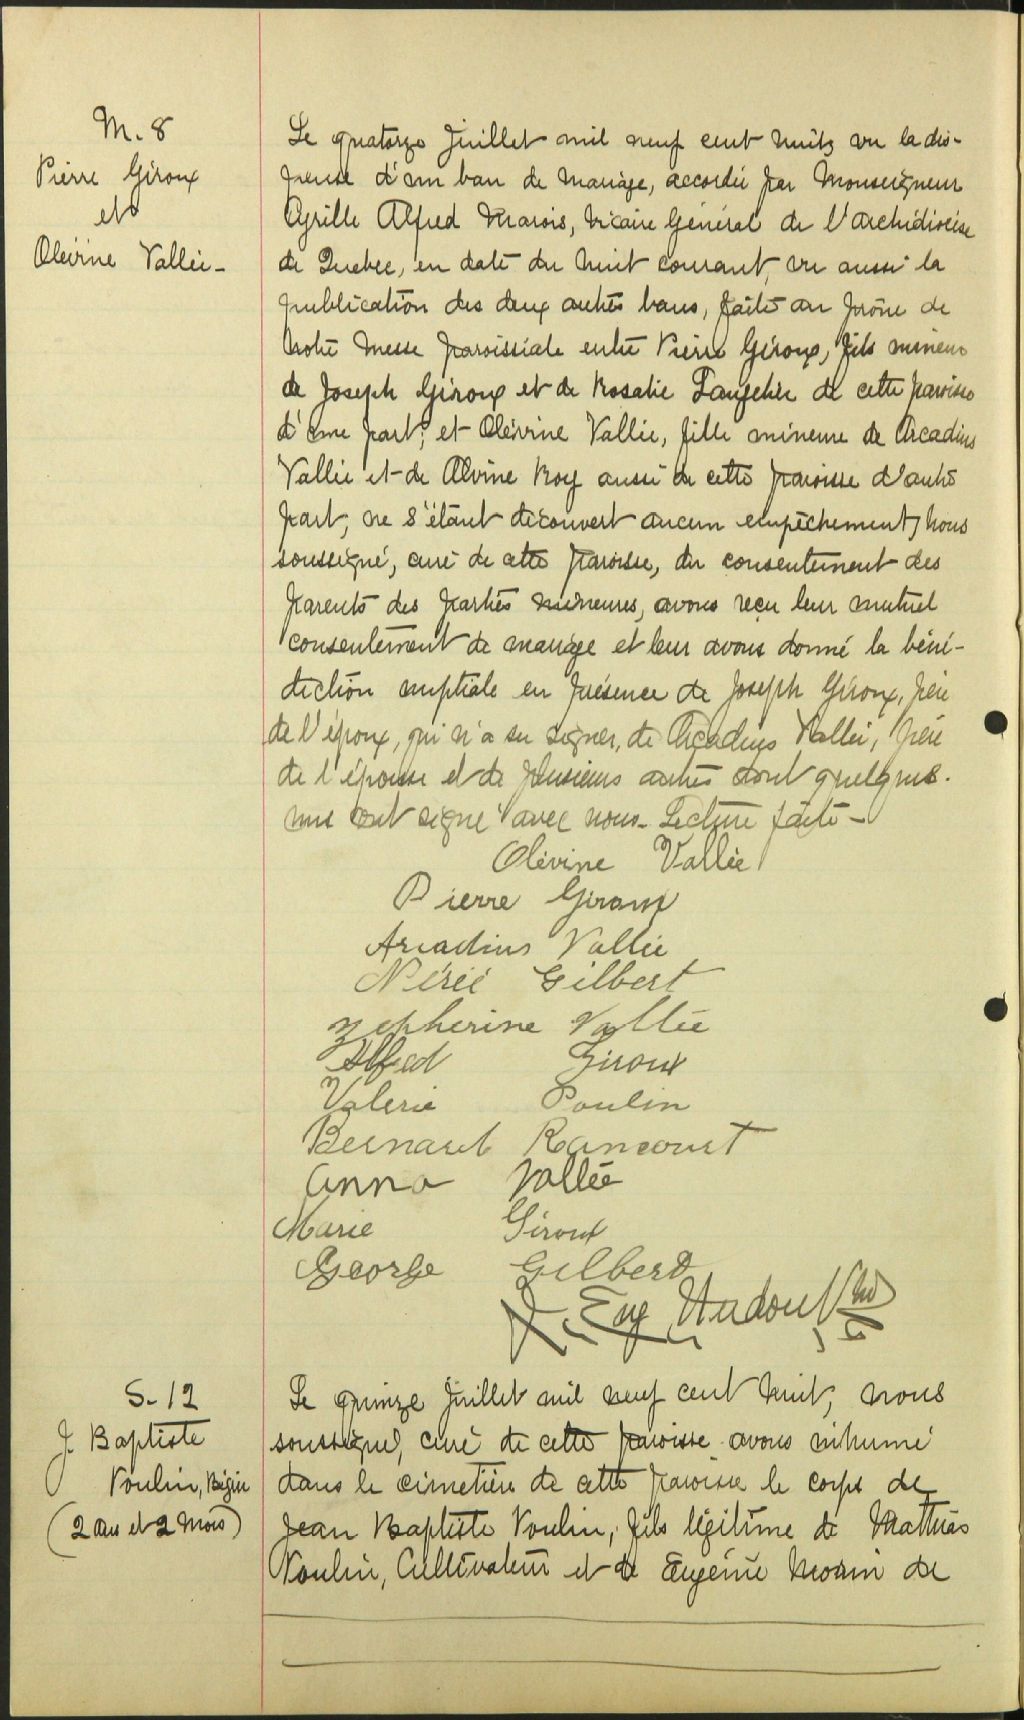 M. 8
Pierre Giroux
et
Olévine Vallée -
Le quatorze Juillet mil neuf cent huit, vu la dis-
pense d'un ban de mariage, accordée par Monseigneur
Cyrille Alfred Marois, Vicaire Général de l'archidiocèse
de Québec, en date du huit courant, vu aussi la
publication des deux autres bans, faite au prône de
notre messe paroissiale entre Pierre Giroux, fils mineur
de Joseph Giroux et de Rosalie de cette paroisse
d'une part; et Olévine Vallée, fille mineure de Arcadius
Vallée et de Alvine Roy aussi de cette paroisse d'autre
part; ne s'étant découvert aucun empêchement, nous
soussigné, curé de cette paroisse, du consentement des
parents des parties mineures, avons reçu leur mutuel
consentement de mariage et leur avons donné la béné-
diction nuptiale en présence de Joseph Giroux, père
de l'époux, qui n'a su signer, de Arcadius Vallée, père
de l'épouse et de plusieurs autres dont quelques-
uns ont signé avec nous - Lecture faite -
Olévine Vallée
Pierre Giroux
Arcadius Vallée
Nérée Gilbert
Zepherine Vallée
Alfred Giroux
Valerie Poulin
Bernard Rancourt
Anna Vallée
Marie Giroux
George Gilbert
J. Eug. Nadeau
S. 12
J. Baptiste
Poulin, Bégin
(2 ans et 2 mois)
Le quinze Juillet mil neuf cent huit, nous
soussigné, curé de cette paroisse avons inhumé
dans le cimetière de cette paroisse le corps de
Jean Baptiste Poulin, fils légitime de Mathias
Poulin, Cultivateur et de Eugénie Morin de